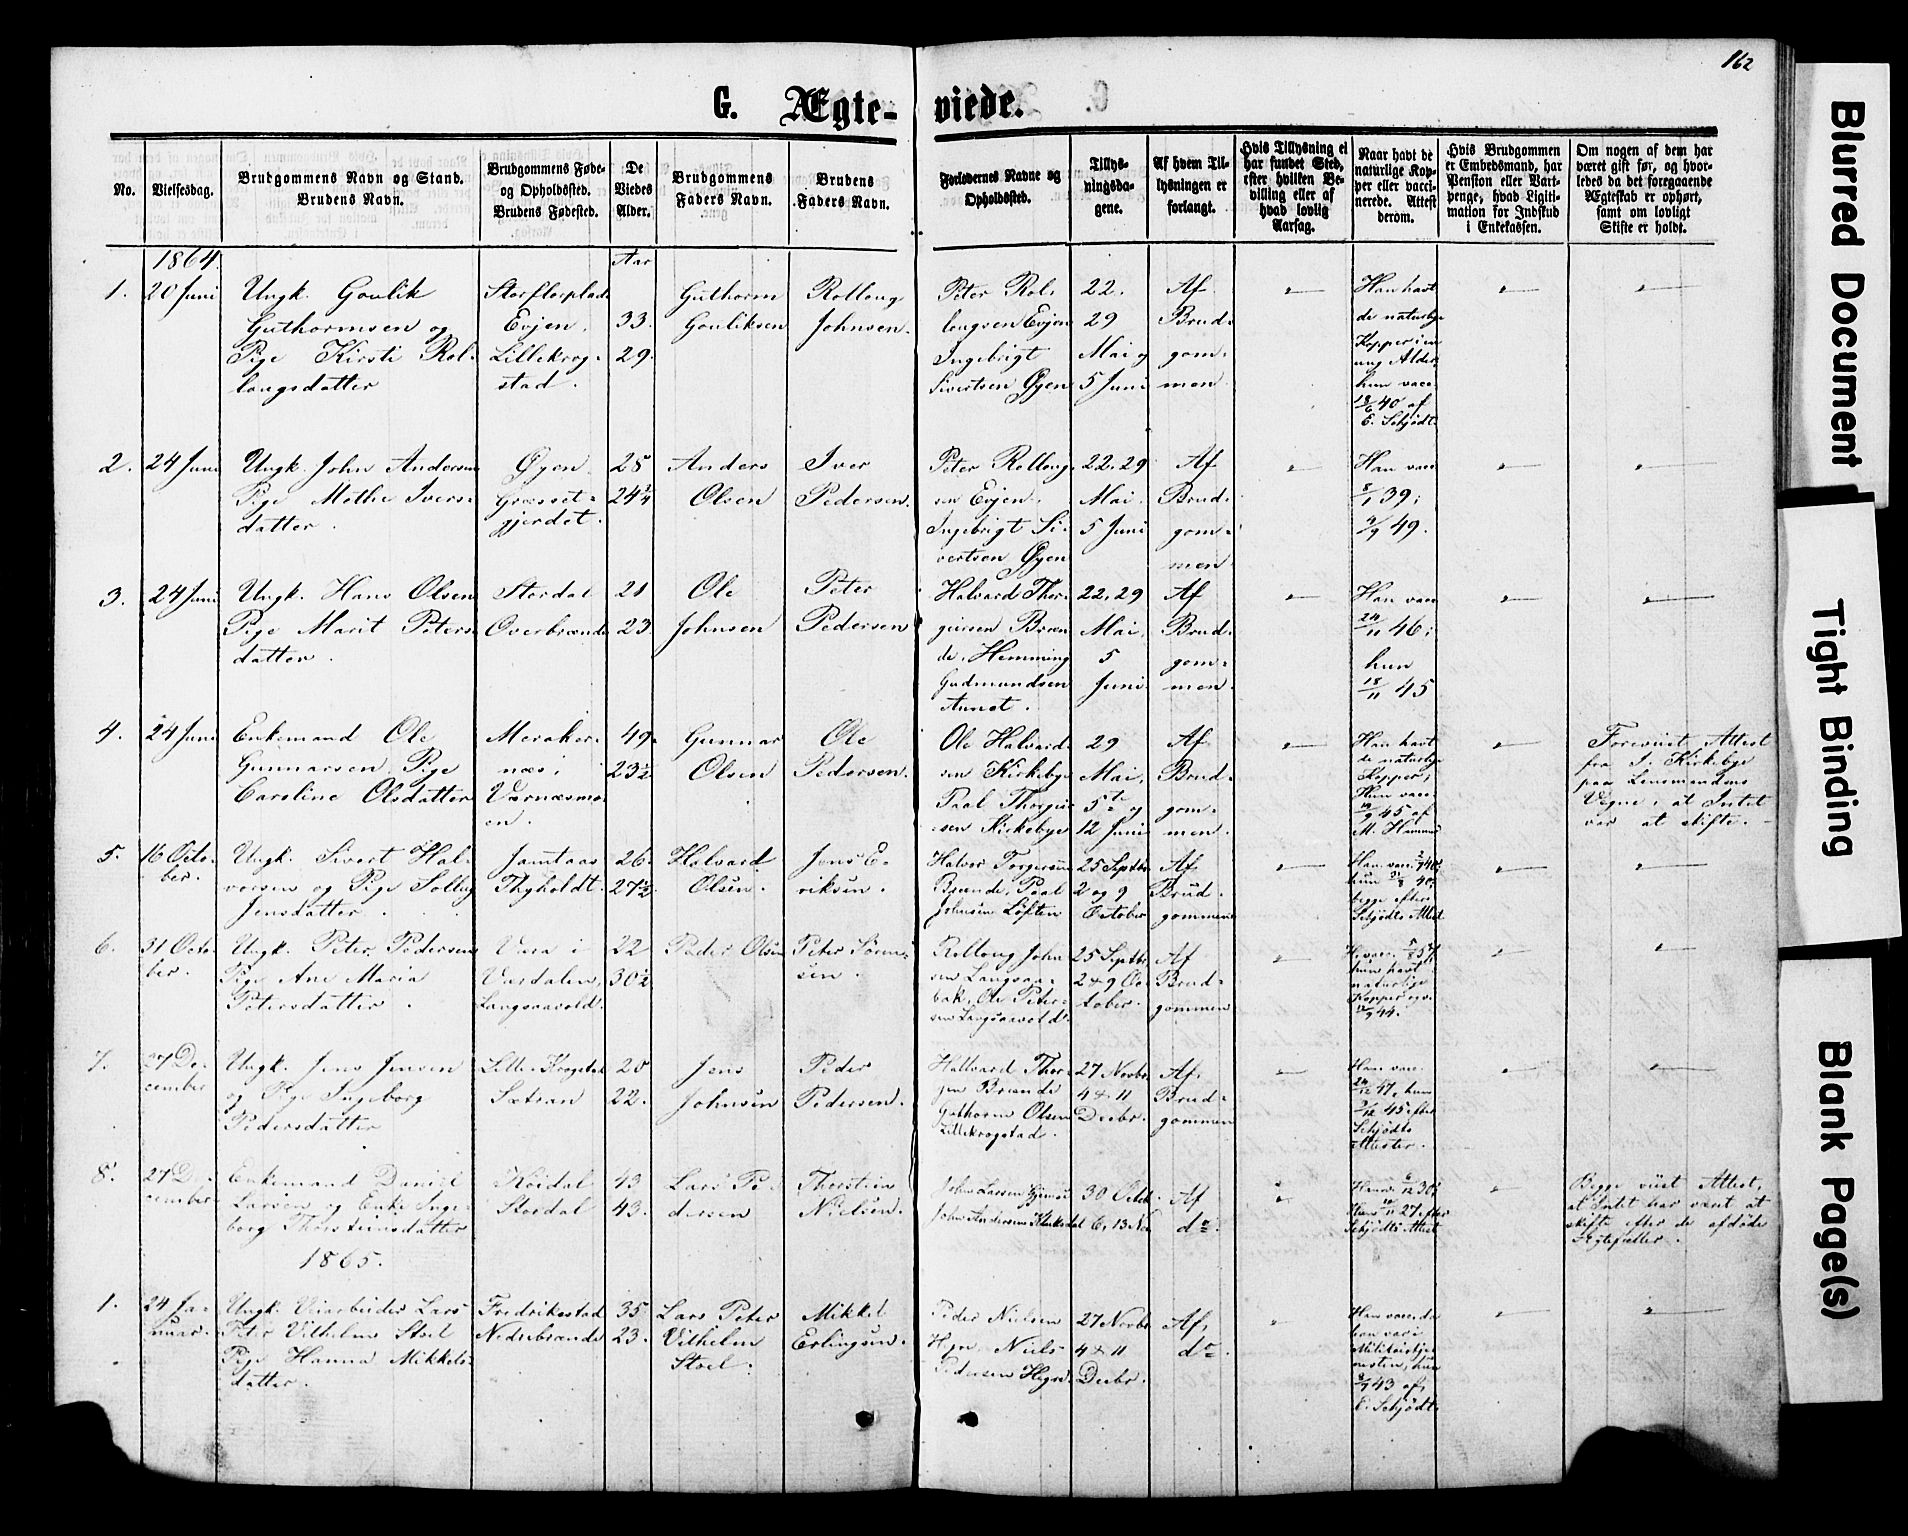 162
G. Ægte-
viede.
No.
Vielsesdag.
Brudgommens Navn og Stand.
Brudens Navn.
Brudgommens Føde-
og Opholdssted.
Brudens Fødested.
De
Viedes
Alder.
Brudgommens
Faders Navn.
Brudens
Faders Navn.
Forlovernes Navne og
Opholdssted.
Tillys-
ningsda-
gene.
Af hvem Til-
lysningen er
forlangt.
Hvis Tillysning ei
har fundet Sted,
efter hvilken Be-
villing eller af
hvad lovlig
Aarsag.
Naar havt de
naturlige Kop-
per eller vacci-
nerede. Attest
derom.
Hvis Brudgommen
er Embedsmand, har
Pension eller Vart-
penge, hvad Ligiti-
mation for Indskud
i Enkekassen.
Om nogen af dem har
været gift før, og hvor-
ledes da det foregaaende
Ægteskab er ophørt,
samt om lovligt
Skifte er holdt.
1864.
Aar
1.
20 Juni
Ungk. Goulik
Guthormsen og
Pige Kirsti Rol-
laugsdatter
Storflorplads
Evjen.
Lillekrog-
stad.
33.
29.
Guthorm
Gouliksen
Rolloug
Johnsen.
Peter Rol-
lougsen Evjen
Ingebrigt
Sivertsen Øyen
22.
29
Mai og
5 Juni
Af
Brud-
gom-
men.
Han havt
de naturlige
Kopper i en
ung Alder
hun vacc.
18/6 40 af
E. Schjødt.
2.
24 Juni
Ungk. John Andersen
Pige Methe Ivers-
datter.
Øyen.
Græsset-
gjerdet.
25
24 3/4
Anders
Olsen
Iver
Pedersen.
Peter Rolloug-
sen Evjen.
Ingebrigt Si-
vertsen Øyen
22. 29
Mai.
5 Juni
Af
Brud-
gom-
men.
Han vacc
8/1 39;
4/9 49.
3.
24 Juni
Ungk. Hans Olsen
Pige Marit Peters-
datter.
Stordal
Overbrænde
21
23
Ole
Johnsen
Peter
Pedersen
Halvard Thor-
geirsen Bræn-
de. Hemming
Gudmundsen
22. 29
Mai.
5
Juni
Af
Brud-
gom-
men.
Han vacc
24/11 46;
hun
18/11 45
4.
24 Juni
Enkemand Ole
Gunnarsen, Pige
Caroline Olsdatter
Meraker-
næs;
Værnæsmo-
en.
49.
23 1/2
Gunnar
Olsen
Ole
Pedersen.
Ole Halvard-
sen Kirkeby
Paal Thorgeir-
sen Kirkebye
29
Mai,
5te og
12 Juni
Af
Brud-
gom-
men.
Han havt
de naturlige
Kopper,
Hun vacc
/9 45 af
M. Hammer
Foreviist Attest
fra J. Kirkebye
paa Lensmandens
Vegne, at Intet
var at skifte.
5.
16 Octo-
ber.
Ungk. Sivert Hal-
vorsen og Pige Solloug
Jensdatter.
Jamtaas
Thyholdt.
26.
27 1/2
Halvard
Olsen.
Jens E-
riksen.
Halvor Torgersen
Brænde, Paal
Johnsen Løften
25 Septbr
2 og 9
October
Af
Brud-
gommen
Han vacc.
hun
begge efter
Schjødts Attest
6.
31 Octo-
ber.
Ungk. Peter Pedersen
Pige Ane Maria
Petersdatter.
Væra i
Værdalen,
Langsaavold.
22
30 1/2
Peder Olsen
Peter Søren-
sen.
Rolloug John
sen Langsaa-
bak, Ole Peter-
sen Langsaavold.
25 Septbr
2 & 9 Oc-
tober.
Af
Brud-
gommen
H. vacc. 5/8 57,
hun havt
naturlige
Kopper
7.
27 De-
cember
Ungk. Jens Jensen
og Pige Ingeborg
Pedersdatter
Lille Krogstad
Sætran
20
22.
Jens
Johnsen
Peder
Pedersen.
Hallvard Thor-
gen Brænde
Guthorm Olsen
Lillekrogstad.
27 Novbr
4 & 11
Decbr.
Af
Brud-
gommen
Han vacc.
24/12 47, hun
/12 45 efter
Schjødts
Attester.
8.
27 De-
cember
Enkemand Daniel
Larsen og Enke Inge-
borg Thorsteinsdatter
Kôidal
Stordal
43
43.
Lars Pe-
dersen
Thorstein
Nielsen.
John Larsen
John Andersen
30 Octob.
6, 13 Nov
Af
do.
27 efter
Schjødts Attest
Begge viist Attest,
at Intet har vært at
skifte efter de afdøde
Ægtefæller.
1865.
1.
24 Ja-
nuar.
Ungk. Veiarbeider Lars
Peter Vilhelm Stoel
Pige Hanna Mikkels-
datter.
Fredrikstad
Nedrebrænde
35.
23.
Lars Peter
Vilhelm
Stoel.
Mikkel
Erlingsen.
Peder Nielsen
Hegre. Niels
Pedersen Hegre.
27 Novbr
4 & 11
Decbr.
Af
do.
Han vacc. da
han var i
Militairtje-
nesten, hun
8/9 43 af
E. Schjødt.
Blurred Document
Tight Binding
Blank Page(s)